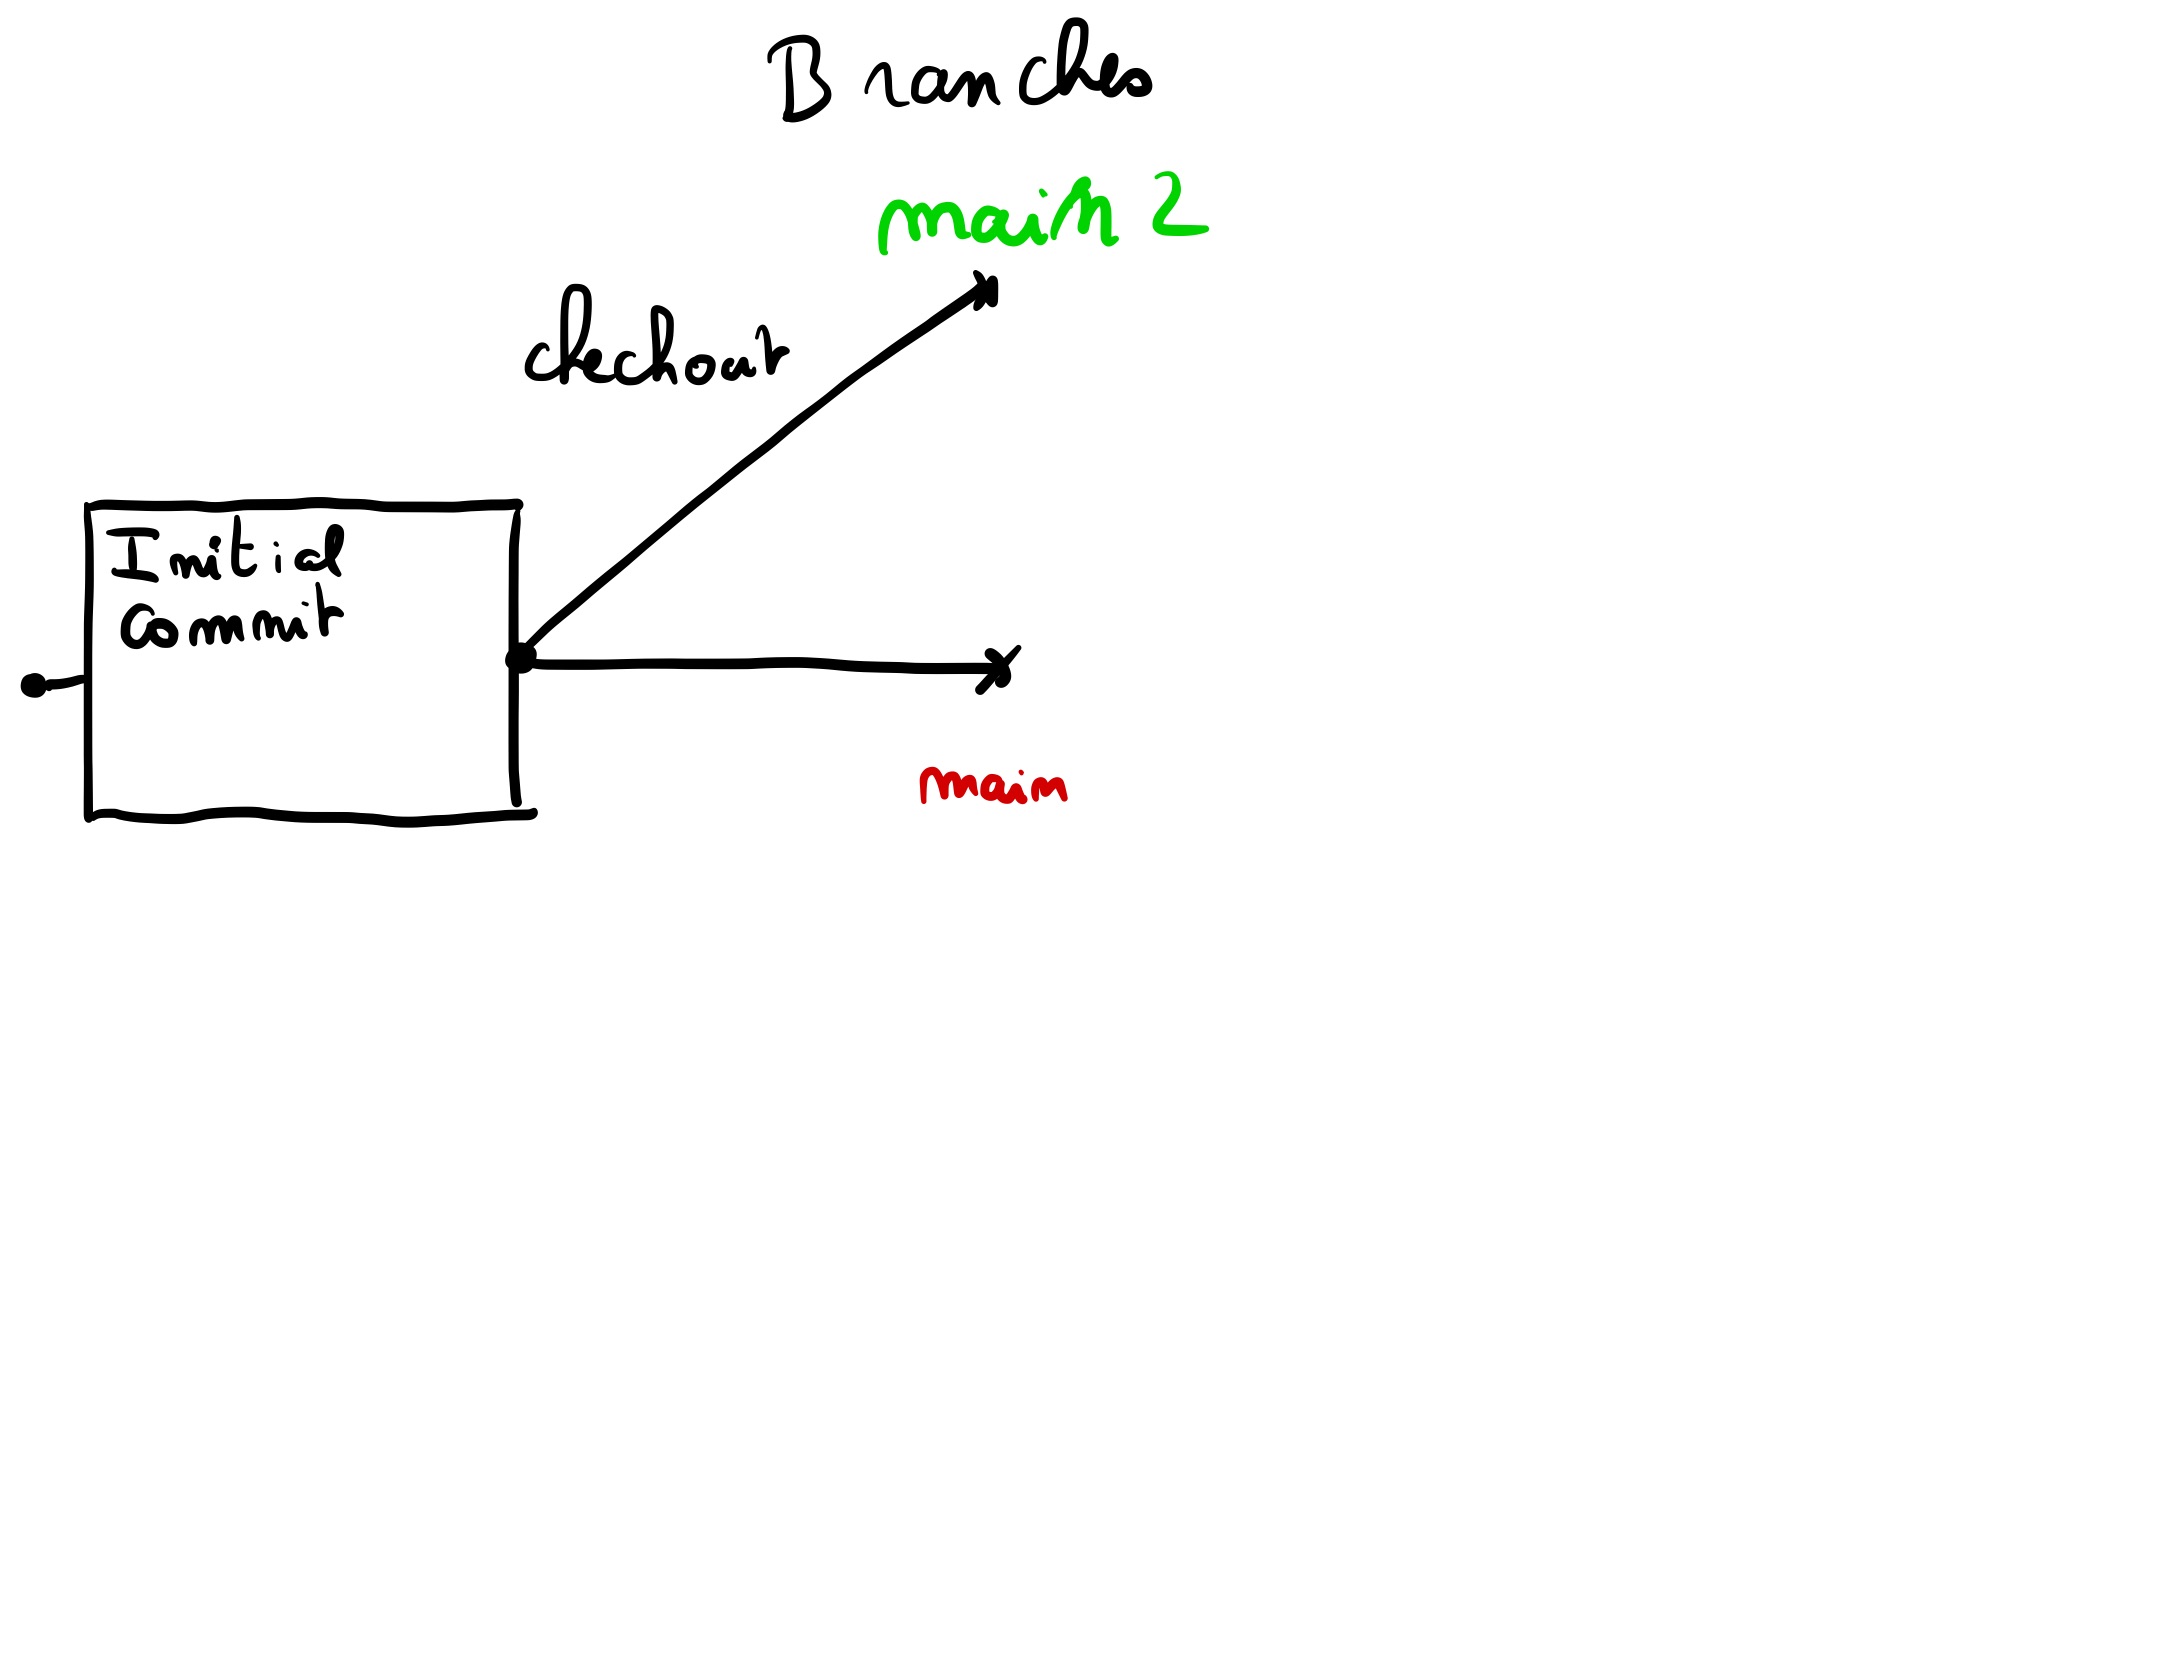 Branches
main 2
checkout
Initial
commit
main